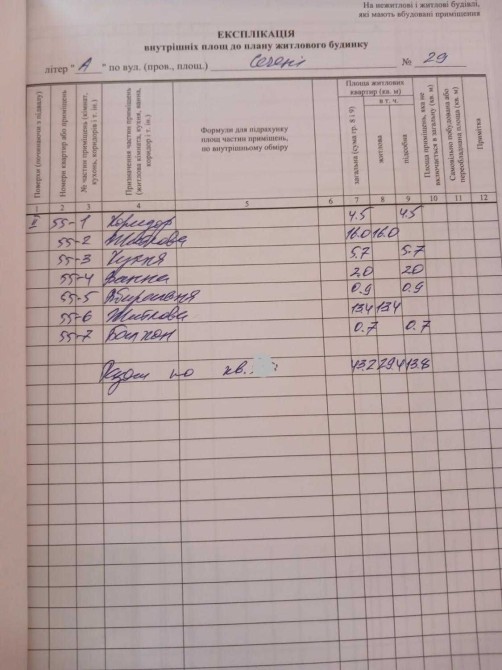 На нежитлові і житлові будівлі,
які мають вбудовані приміщення
ЕКСПЛІКАЦІЯ
внутрішніх площ до плану житлового будинку
літер " А " по вул. (пров., площ.) Сечені № 29
Поверхи (починаючи з підвалу)
Номери квартир або приміщень
№ частин приміщень (кімнат, кухонь, коридорів і т. ін.)
Призначення частин приміщень (житлова кімната, кухня, ванна, коридор і т. ін.)
Формули для підрахунку
площ частин приміщень,
по внутрішньому обміру
Площа житлових
квартир (кв. м)
в т. ч.
загальна (сума гр. 8 і 9)
житлова
підсобна
Площа приміщень, яка не включається в загальну (кв. м)
Самовільно побудована або переобладнана площа (кв. м)
Примітка
1 2 3 4 5 6 7 8 9 10 11 12
55-1 Коридор 4.5 4.5
55-2 Житлова 16.0 16.0
55-3 Кухня 5.7 5.7
55-4 Ванна 2.0 2.0
55-5 Вбиральня 0.9 0.9
55-6 Житлова 13.4 13.4
55-7 Балкон 0.7 0.7
Разом по кв. 43.2 29.4 13.8